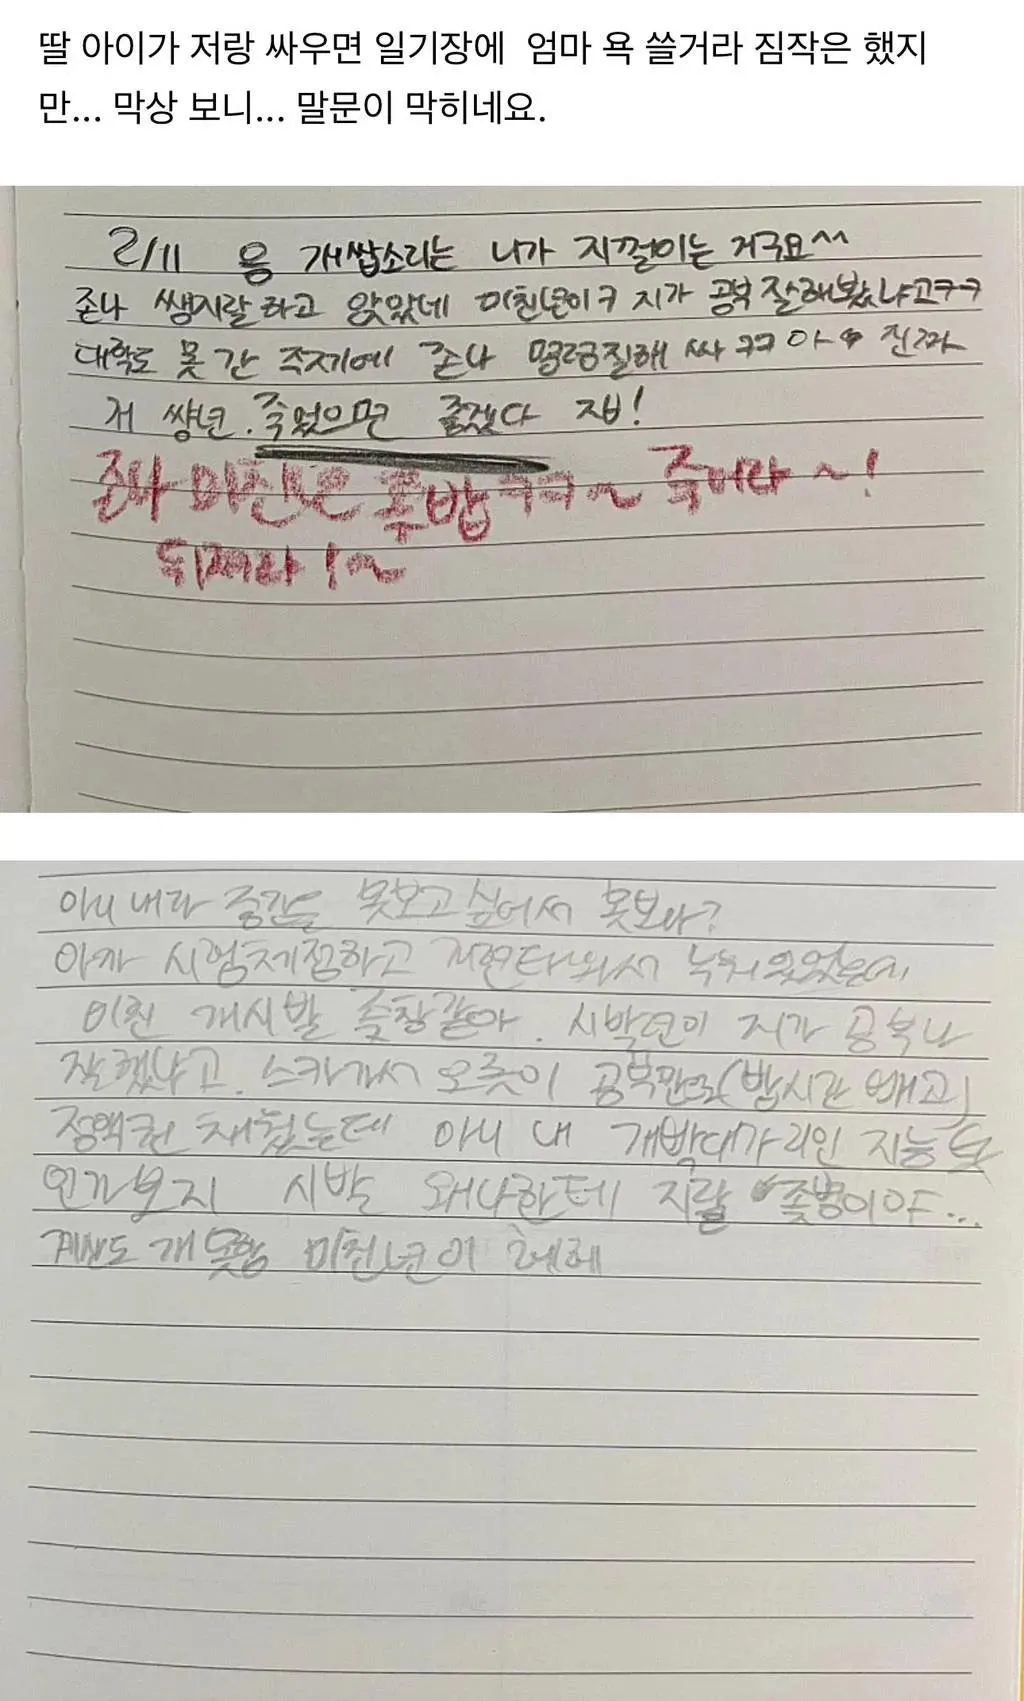 딸 아이가 저랑 싸우면 일기장에 엄마 욕 쓸거라 짐작은 했지
만... 막상 보니... 말문이 막히네요.
2/11 응 개쌉소리는 니가 지껄이는 거구요^^
존나 쌩지랄하고 앉았네 미친년이ㅋ 지가 공부 잘해봤냐고ㅋㅋ
대학도 못 간 주제에 존나 명령질해 싸 ㅋㅋ 아 진짜
저 썅년. 죽었으면 좋겠다 제발!
존나 미친년 좆밥 ㅋㅋ~ 죽어라~!
뒤져라!~
아니 내라 중간을 못보고싶어서 못보나?
아까 시험채점하고 현타와서 누워있었는데
미친 개시발 좆창같아. 시발년이 지가 공부나
잘했냐고. 스카가서 오롯이 공부만으로(밥시간 빼고)
정액권 채웠는데 아니 내 개빡대가리인 지능
인가보지 시발 왜나한테 지랄 좆병이야...
계산도 개못함 미친년이 헤헤